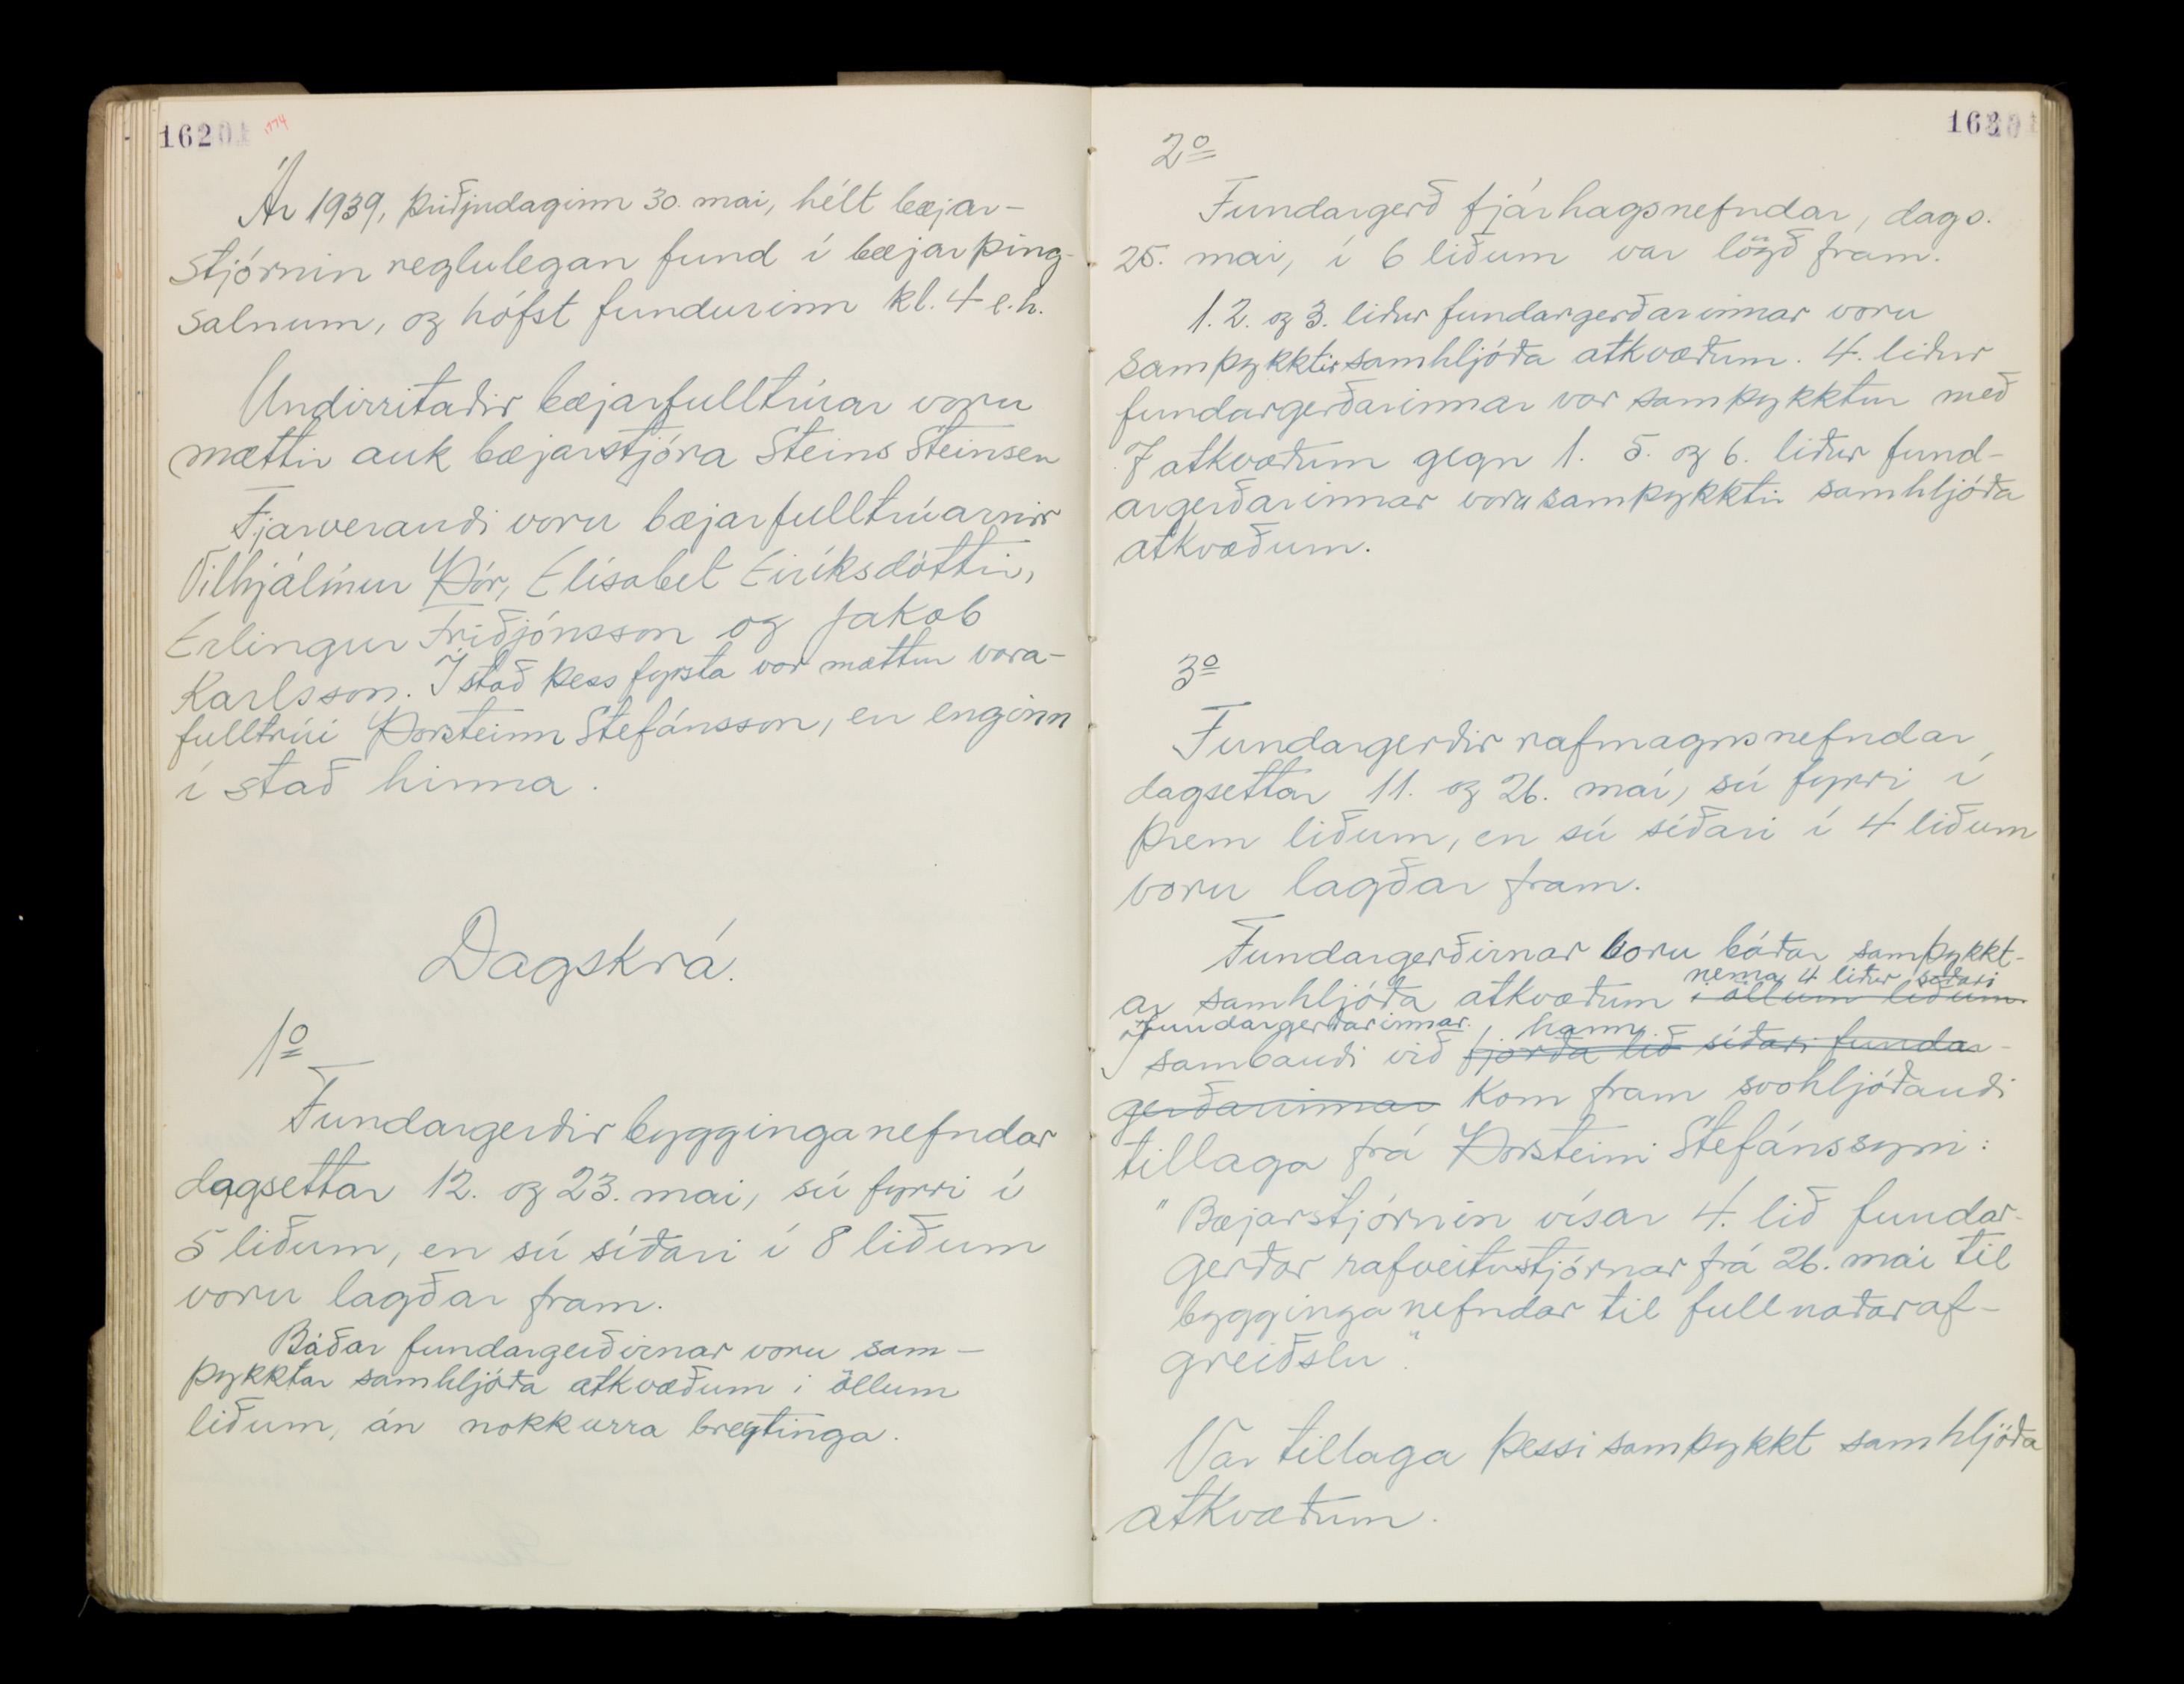 162
Ár 1939, þriðjudaginn 30. mai, hélt bæjar-
stjórnin reglulegan fund í bæjarþing-
salnum, og hófst fundurinn kl. 4 e.h.
Undirritaðir bæjarfulltrúar voru
mættir auk bæjarstjóra Steins Steinsen
Fjarverandi voru bæjarfulltrúarnir
Vilhjálmur Þór, Elísabet Eiríksdóttir,
Erlingur Friðjónsson og Jakob
Karlsson. Í stað þess fyrsta var mættur vara-
fulltrúi Þorsteinn Stefánsson, en enginn
í stað hinna.
Dagskrá.
1º
Fundargerðir bygginganefndar
dagsettar 12. og 23. mai, sú fyrri í
5 liðum, en sú síðari í 8 liðum
voru lagðar fram.
Báðar fundargerðirnar voru sam-
þykktar samhljóða atkvæðum i öllum
liðum, án nokkurra breytinga.
2º
Fundargerð fjárhagsnefndar, dags.
25. mai, í 6 liðum var lögð fram.
1. 2. og 3. liður fundargerðarinnar voru
samþykktir samhljóða atkvæðum. 4. liður
fundargerðarinnar var samþykktur með
7 atkvæðum gegn 1. 5. og 6. liður fund-
argerðarinnar voru samþykktir samhljóða
atkvæðum.
3º
Fundargerðir rafmagnsnefndar,
dagsettar 11. og 26. maí, sú fyrri í
þrem liðum, en sú síðari í 4 liðum
voru lagðar fram.
Fundargerðirnar voru báðar samþykkt-
nema 4 liður síðari
ar samhljóða atkvæðum i öllum liðum.
fundargerðarinnar. , hann
Í sambandi við fjórða lið síðari fundar-
gerðarinnar kom fram svohljóðandi
tillaga frá Þorsteini Stefánssyni:
"Bæjarstjórnin vísar 4. lið fundar-
gerðar rafveitustjórnar frá 26. maí til
bygginganefndar til fullnaðaraf-
greiðslu".
Var tillaga þessi samþykkt samhljóða
atkvæðum.